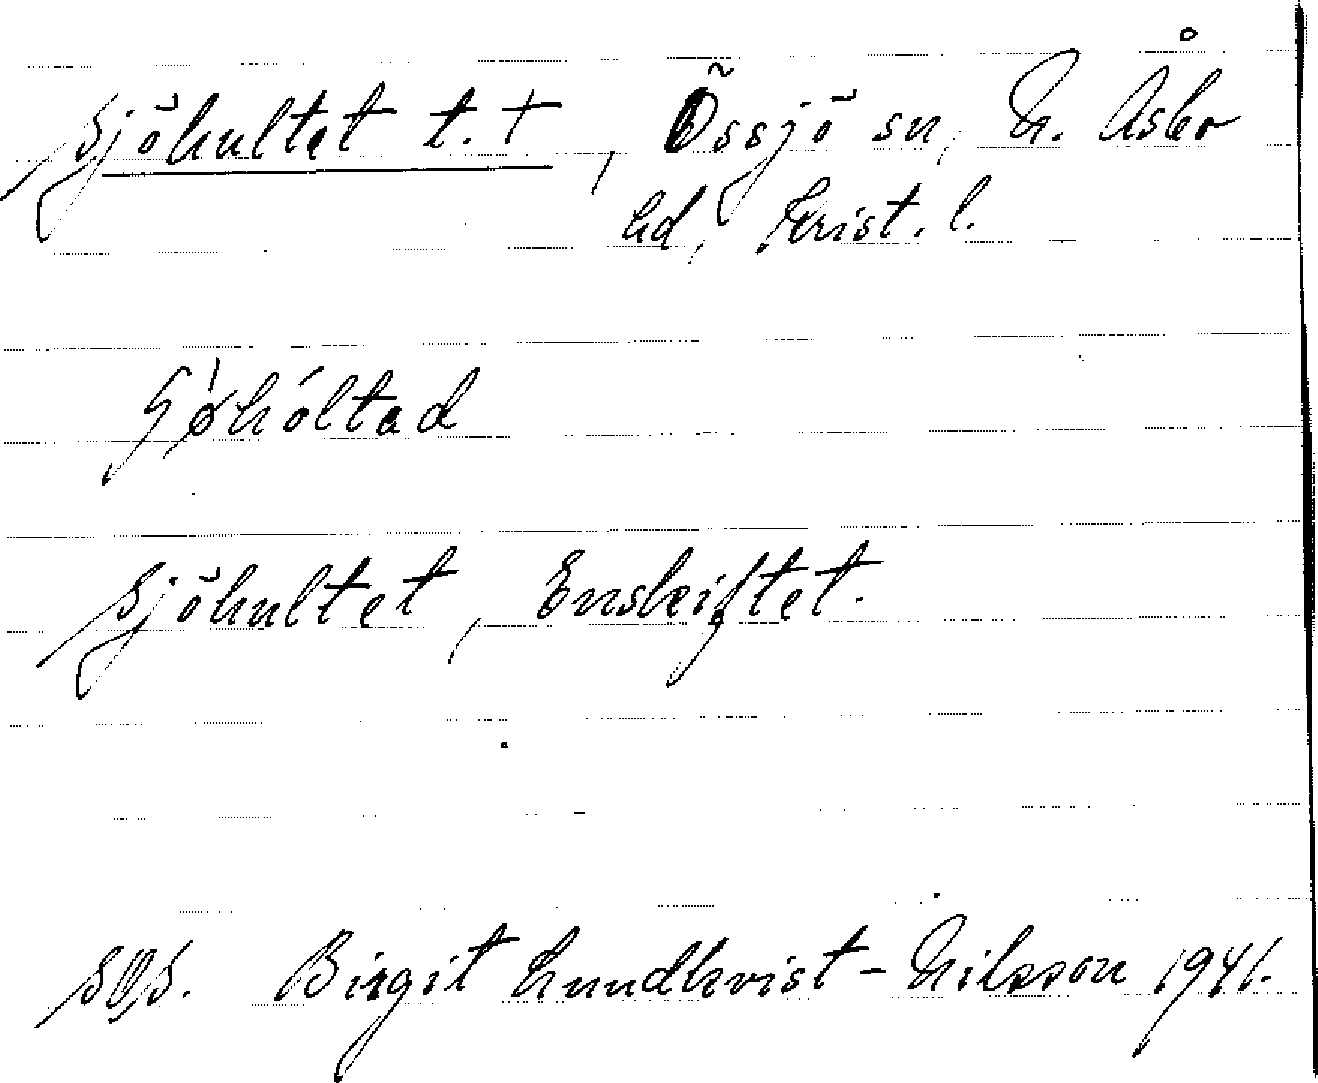 Sjöhultet t.t, Össjö sn, N. Åsbo
hd, Krist. l.
Sjöhultet, Enskiftet.
SOS. Birgit Lundkvist-Nilsson 1941.